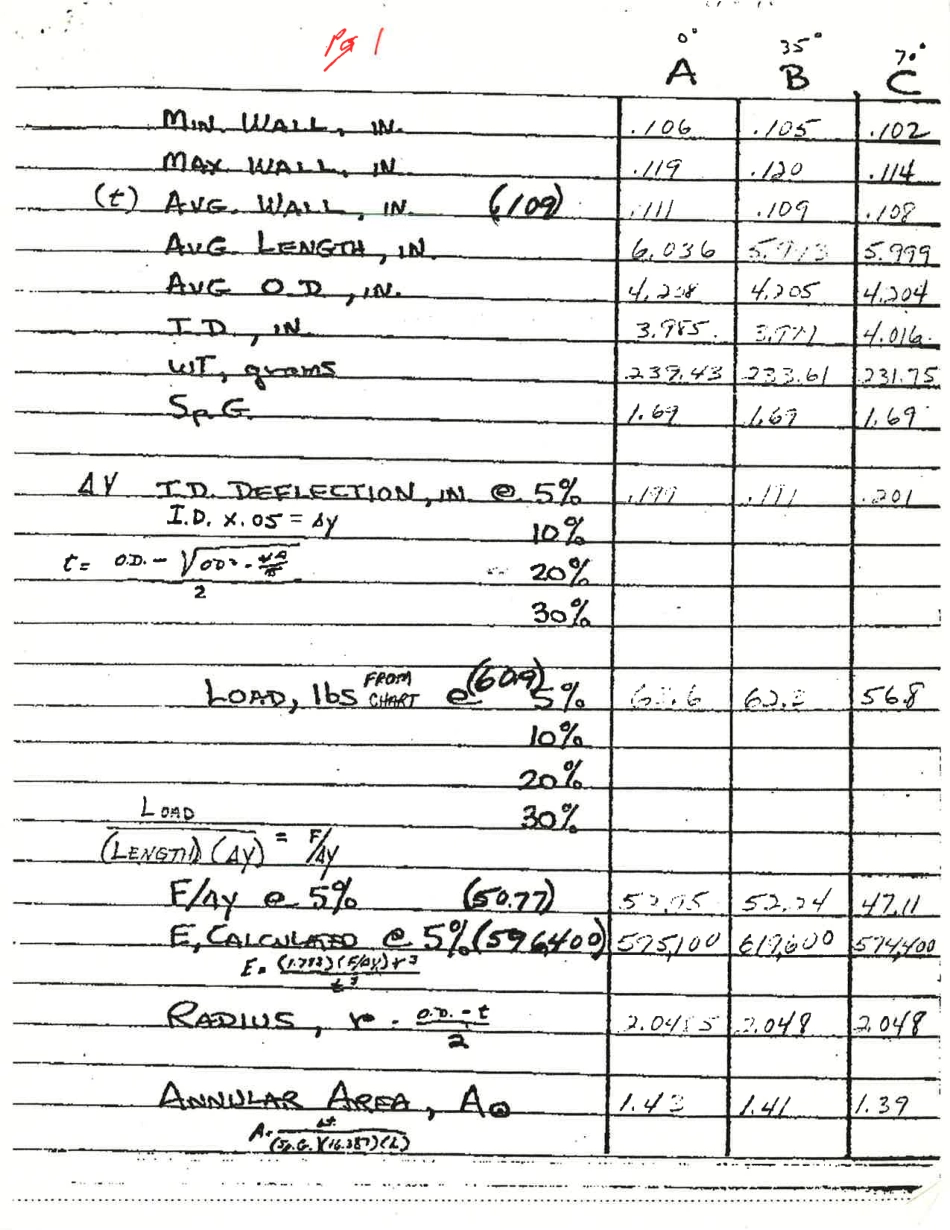 Pg 1
0° 35° 70°
A B C
MIN. WALL, IN. .106 .105 .102
MAX WALL, IN .119 .120 .114
(t) AVG. WALL, IN. (.109) .111 .109 .108
AVG LENGTH, IN. 6.036 5.999
AVG O.D., IN. 4.208 4.205 4.204
I.D., IN. 3.985 3.971 4.016
WT, grams 239.43 233.61 231.75
Sp G. 1.69 1.69 1.69
ΔY I.D. DEFLECTION, IN. @ 5% .199 .201
I.D. x .05 = Δy
10%
t = O.D. - √OD² - 4A/π
2
20%
30%
LOAD, lbs FROM CHART @ (60.9) 5% 56.8
10%
20%
LOAD 30%
(LENGTH) (ΔY) = F/ΔY
F/Δy @ 5% (50.77) 52.24 47.11
E, CALCULATED @ 5% (596400) 595,100 619,600 574,400
E = (F/ΔY) r³
t³
RADIUS, r = O.D. - t 2.0485 2.048 2.048
2
ANNULAR AREA, A@ 1.43 1.41 1.39
A = wt.
(Sp.G.)(16.387)(L)